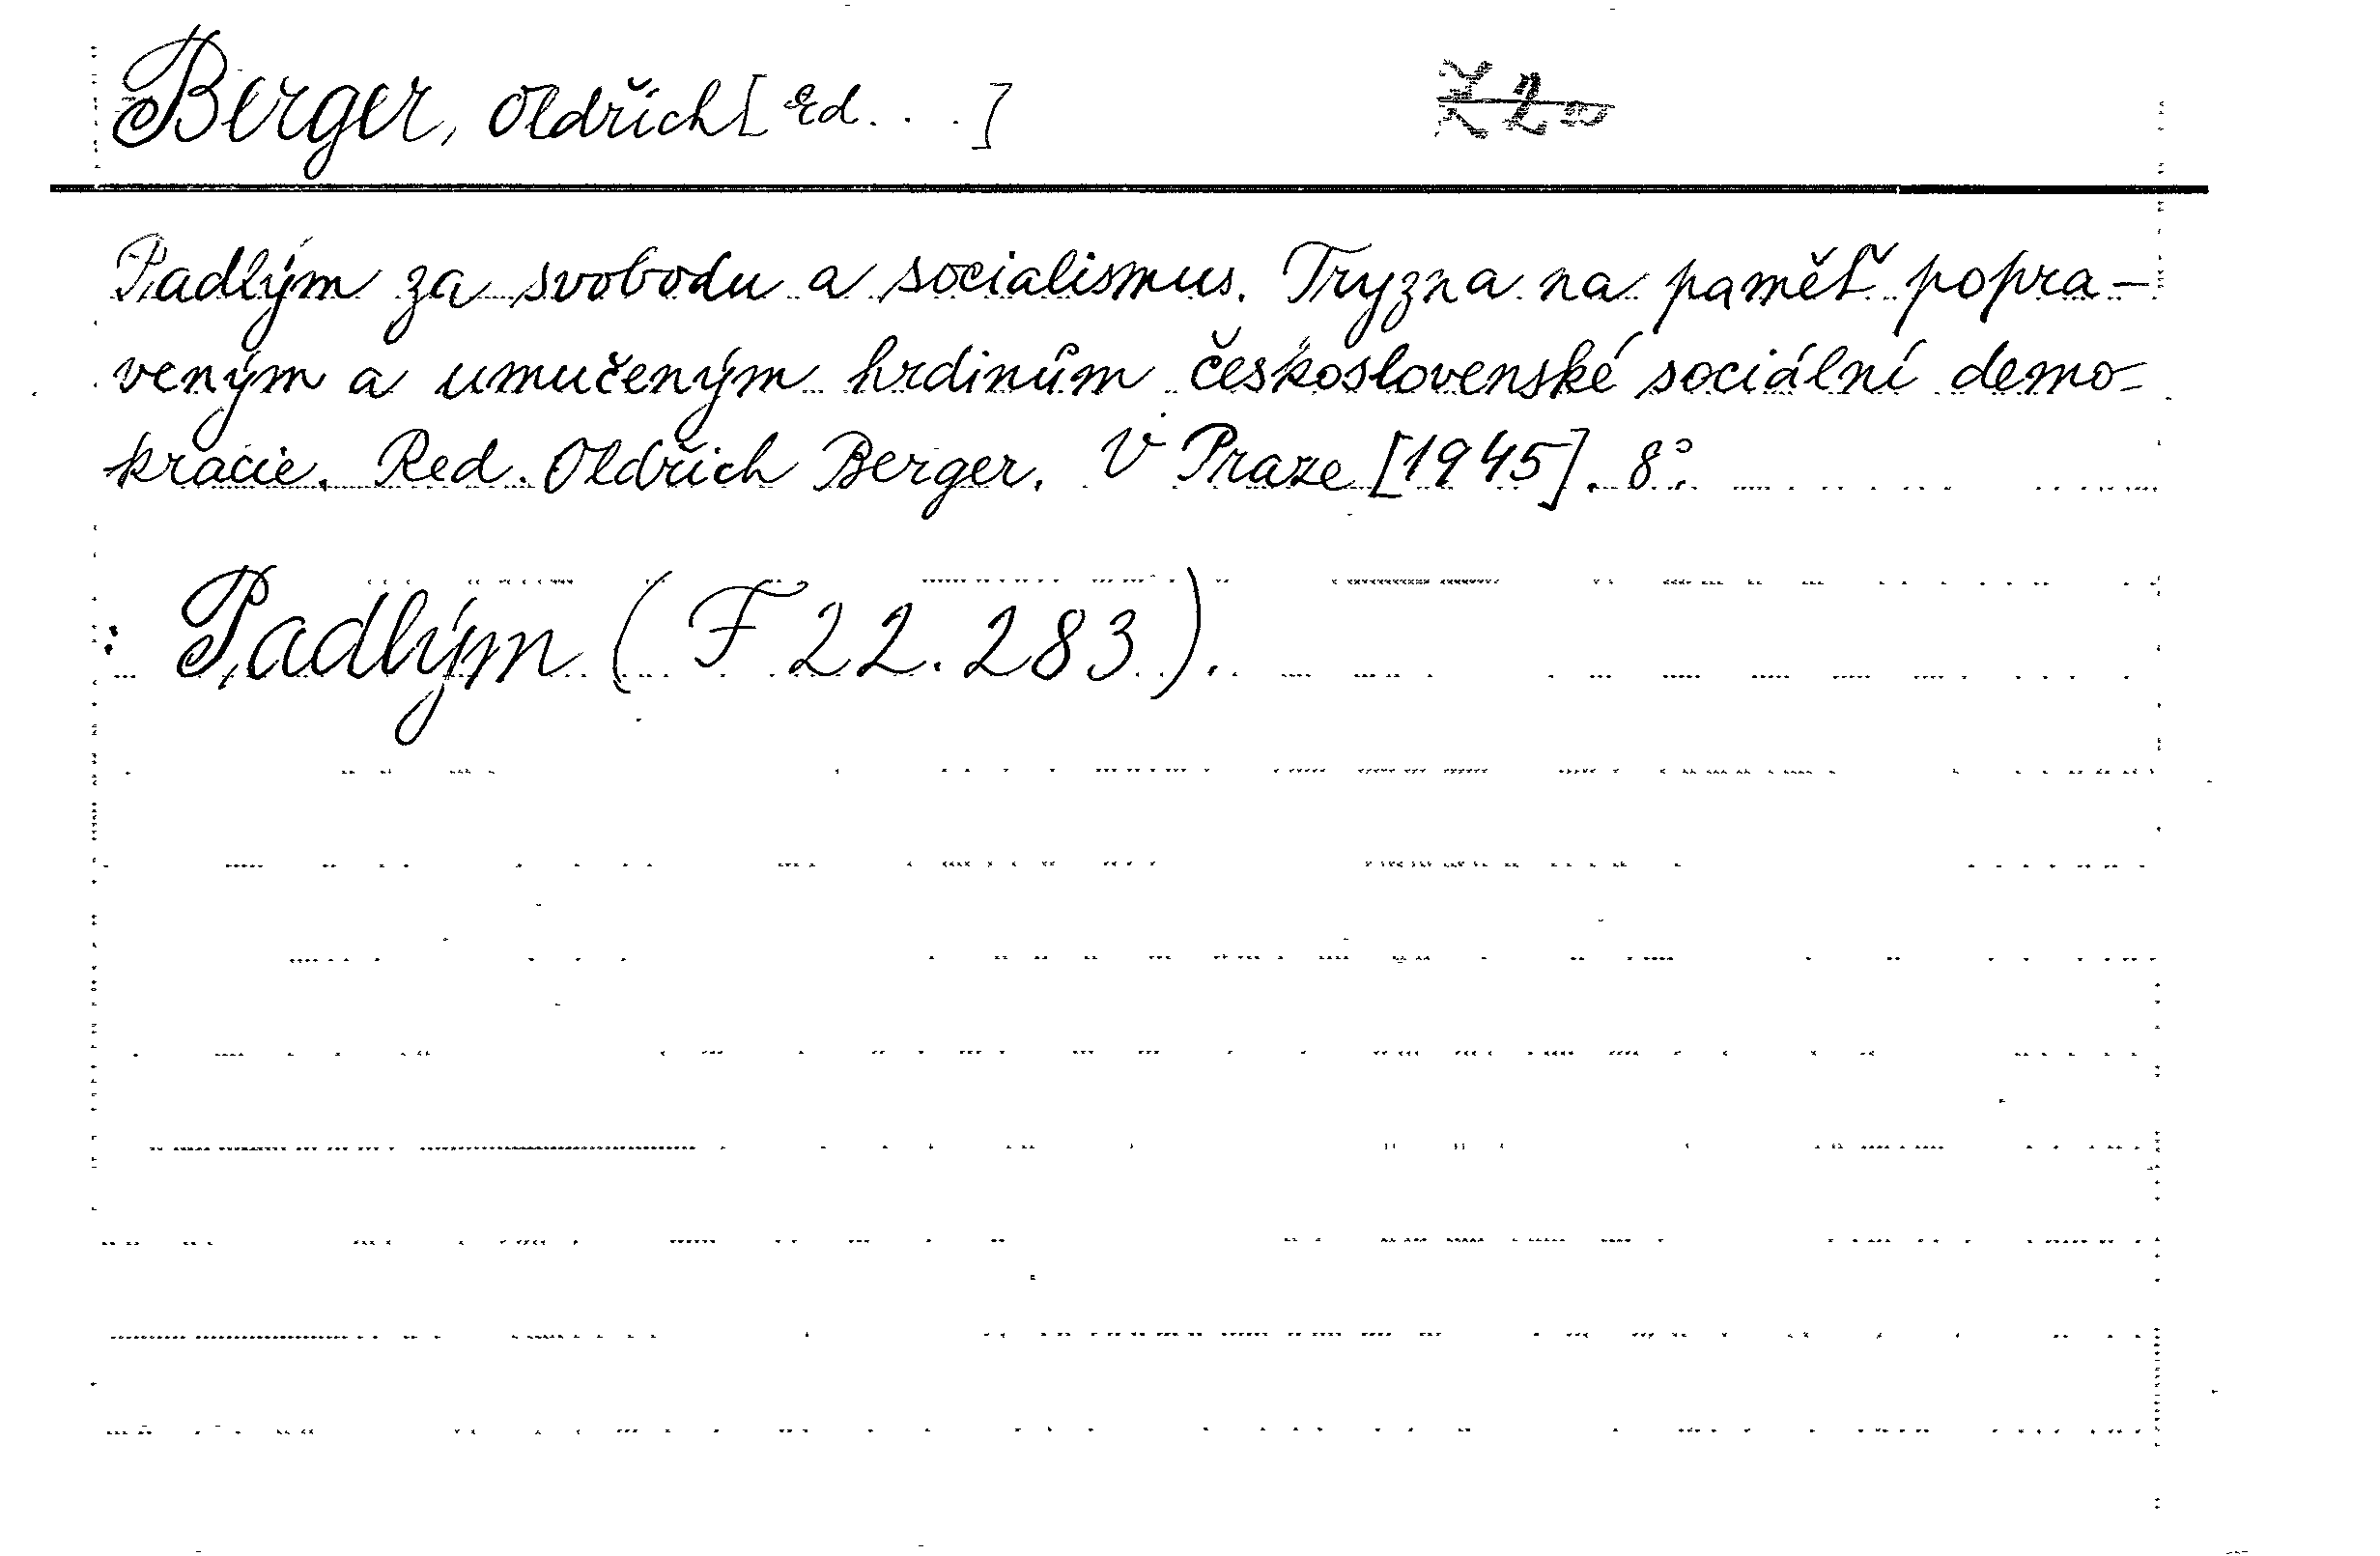 Berger, Oldřich [Ed. . . .]
Padlým za svobodu a socialismus. Tryzna na paměť popra-
veným a umučeným hrdinům československé sociální demo-
kracie. Red. Oldřich Berger. V Praze [1945]. 8°.
: Padlým (F 22.283).